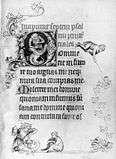 septem psal
mi peni
Domine
ne in furo
re tuo arguas me neq
in ira tua corripias me
Miserere mei domine
quoniam infirmus su
sana me domine quoni
am conturbata sunt